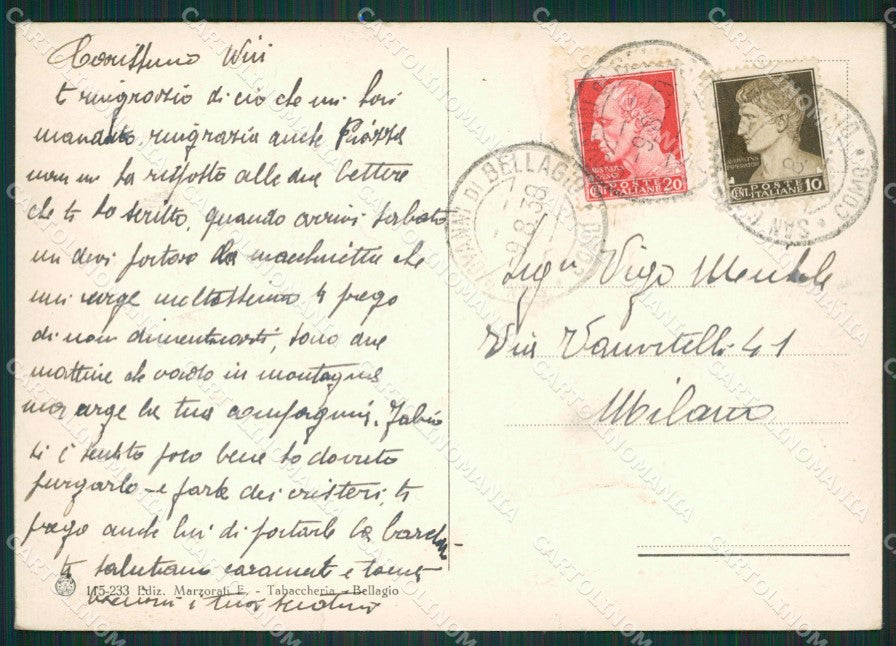 Carissimo Vivi
ti ringrazio di ciò che mi hai
mandato, ringrazia anche Piazza
non mi ha risposto alle due lettere
che ti ho scritto, quando arrivi sabato
mi devi portare la macchinetta che
mi urge moltissimo ti prego
di non dimenticarti, sono due
mattine che vado in montagna
ma urge la tua compagnia. Fabio
si è sentito poco bene ho dovuto
purgarlo e farle dei cristeri, ti
prego anche lui di portarle la
ti salutiamo caramente e
i tuoi
115-233 Ediz. Marzorati E. - Tabaccheria - Bellagio
SAN GIOVANNI DI BELLAGIO
9.8.39
POSTE ITALIANE
CENT 20
POSTE ITALIANE
CENT 10
SAN * COMO *
Sigr Vigo Michele
Via Vanvitelli 41
Milano
CARTOLINOMANIA